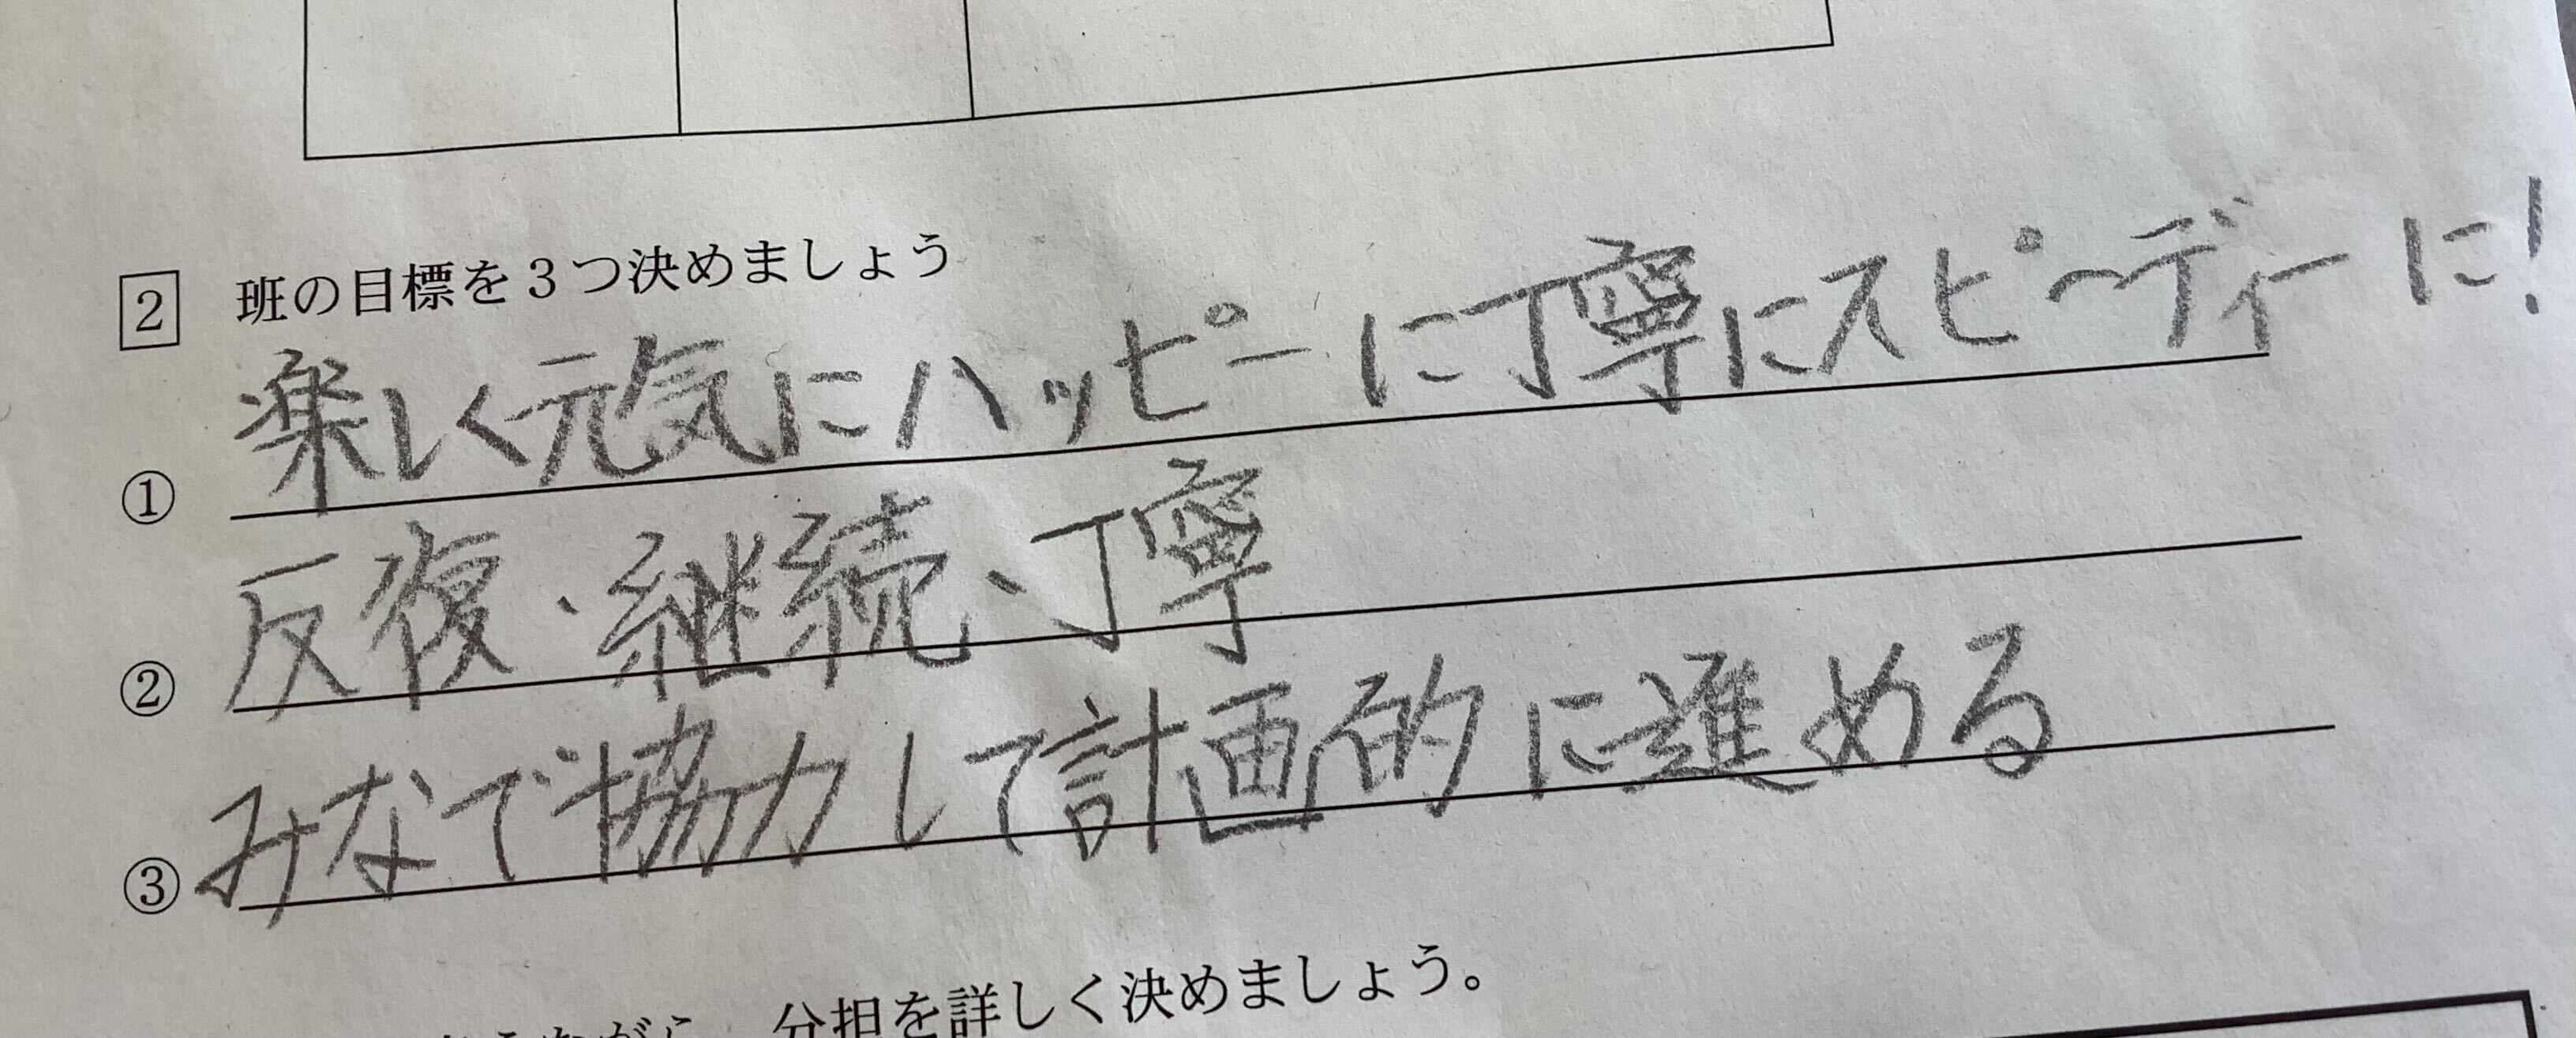 2 班の目標を3つ決めましょう
① 楽しく元気にハッピーに丁寧にスピーディーに!
② 反復・継続、丁寧
③ みなで協力して計画的に進める
分担を詳しく決めましょう。